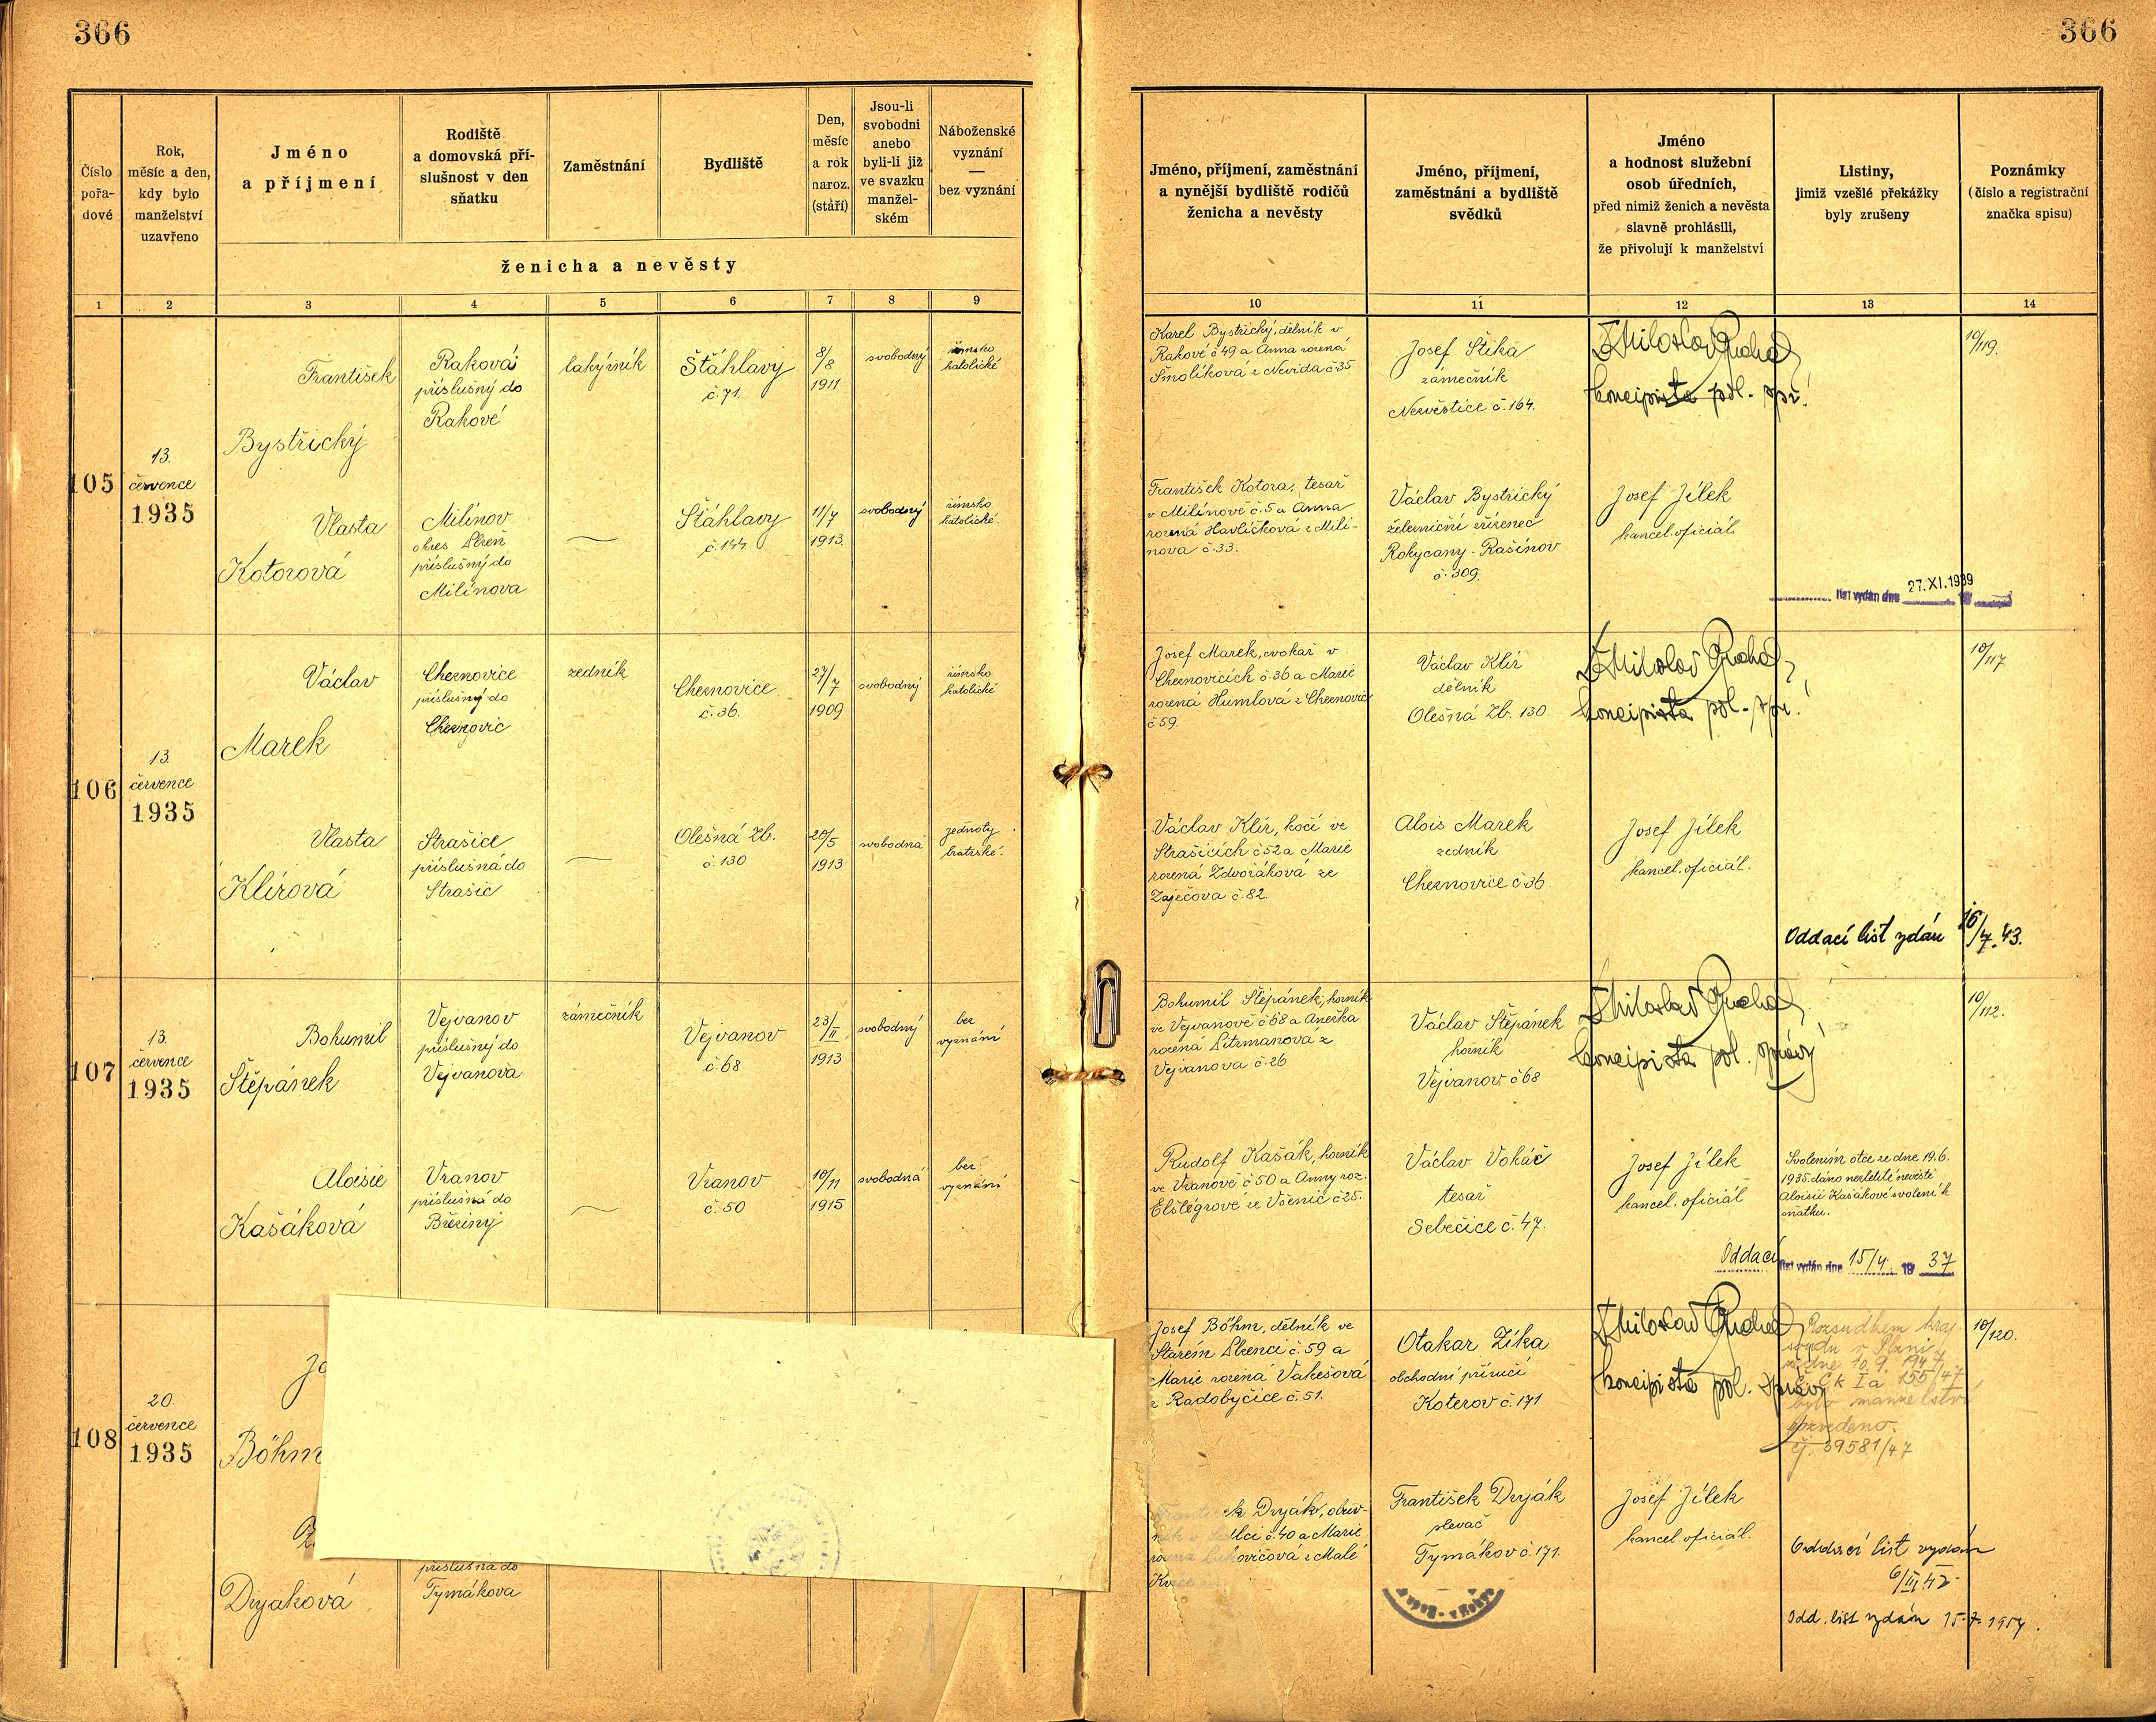 366
366
Číslo
pořa-
dové
Rok,
měsíc a den,
kdy bylo
manželství
uzavřeno
Jméno
a příjmení
Rodiště
a domovská pří-
slušnost v den
sňatku
Zaměstnání
Bydliště
Den,
měsíc
a rok
naroz.
(stáří)
Jsou-li
svobodni
anebo
byli-li již
ve svazku
manžel-
ském
Náboženské
vyznání
—
bez vyznání
ženicha a nevěsty
Jméno, příjmení, zaměstnání
a nynější bydliště rodičů
ženicha a nevěsty
Jméno, příjmení,
zaměstnání a bydliště
svědků
Jméno
a hodnost služební
osob úředních,
před nimiž ženich a nevěsta
slavně prohlásili,
že přivolují k manželství
Listiny,
jimiž vzešlé překážky
byly zrušeny
Poznámky
(číslo a registrační
značka spisu)
1 2 3 4 5 6 7 8 9 10 11 12 13 14
105
13.
července
1935
František
Bystřický
Raková
příslušný do
Rakové
lakýrník
Šťáhlavy
č. 71.
8/8
1911
svobodný
římsko
katolické
Karel Bystřický, dělník v
Rakové č 49 a Anna rozená
Smolíková z Nevida č 35
Josef Stika
zámečník
Nezvěstice č. 164.
Miloslav
koncipista pol. spr.
10/119.
Vlasta
Kotorová
Milínov
okres Plzeň
příslušný do
Milínova
Šťáhlavy
č. 144.
11/7
1913.
svobodný
římsko
katolické
František Kotora, tesař
v Milínově č. 5 a Anna
rozená Havlíčková z Milí-
nova č. 33.
Václav Bystřický
železniční zřízenec
Rokycany - Rašínov
č. 309.
Josef Jílek
kancel. oficiál
list vydán dne 27. XI. 1939
106
13.
července
1935
Václav
Marek
Cheznovice
příslušný do
Cheznovic
zedník
Cheznovice
č. 36.
27/7
1909
svobodný
římsko
katolické
Josef Marek, cvokař v
Cheznovicích č. 36 a Marie
rozená Humlová z Cheznovic
č 59.
Václav Klír
dělník
Olešná Zb. 130.
Miloslav
koncipista pol. spr.
10/117
Vlasta
Klírová
Strašice
příslušná do
Strašic
Olešná Zb.
č. 130
20/5
1913
svobodná
jednoty
bratrské.
Václav Klír, kočí ve
Strašicích č 52 a Marie
rozená Zdvořáková ze
Zaječova č. 82.
Alois Marek
zedník
Cheznovice č 36.
Josef Jílek
kancel. oficiál.
Oddací list vydán 16/4. 43.
107
13.
července
1935
Bohumil
Štěpánek
Vejvanov
příslušný do
Vejvanova
zámečník
Vejvanov
č. 68
23/II
1913
svobodný
bez
vyznání
Bohumil Štěpánek, horník
ve Vejvanově č 68 a Anežka
rozená Pitrmanová z
Vejvanova č. 26
Václav Štěpánek
horník
Vejvanov č 68
Miloslav
koncipista pol. správy
10/112.
Aloisie
Kašáková
Vranov
příslušná do
Březiny
Vranov
č. 50
10/11
1915
svobodná
bez
vyznání
Rudolf Kašák, horník
ve Vranově č 50 a Anny roz.
Elstégrové ze Všenic č 25.
Václav Vokáč
tesař
Sebečice č. 47.
Josef Jílek
kancel. oficiál
Svolením otce ze dne 19.6.
1935 dáno nezletilé nevěstě
Aloisii Kašákové svolení k
sňatku.
Oddací list vydán dne 15/4. 19 37
108
20.
července
1935
Jo
Böhm
Josef Böhm, dělník ve
Starém Plzenci č. 59 a
Marie rozená Vakešová
z Radobyčic č. 51.
Otakar Zíka
obchodní příručí
Koterov č. 171
Miloslav
koncipista pol. správy
Rozsudkem kraj.
soudu v Plzni
ze dne 10. 9. 1947
č. Ck Ia 155/47
bylo manželství
rozvedeno.
čj. 39581/47
10/120.
Dryaková
příslušná do
Tymákova
František Dryák, obuv-
ník v č. 40 a Marie
rozená z Malé
František Dryák
slevač
Tymákov č. 171.
Josef Jílek
kancel oficiál.
Oddací list vydán
6/III 42
Odd. list vydán 15. 7. 1954.